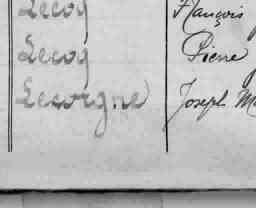 Lecoq François
Lecoq Pierre
Lecorgne Joseph M